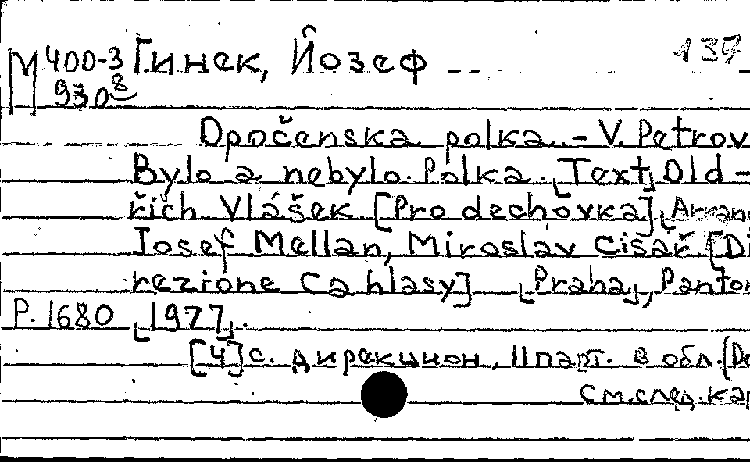 М 400-3 Гинек, Йозеф 137
930⁸
Opočenska polka. - V. Petrov
Bylo a nebylo. Polka. [Text] Old-
řich Vlášek. [Pro dechovka], Arran
Josef Mellan, Miroslav Cisař. [Di
rezione Ca hlasy] [Praha], Panton
P. 1680 [1977].
[4] с. дирекцион, 11 парт. в обл. (
См. след. кар